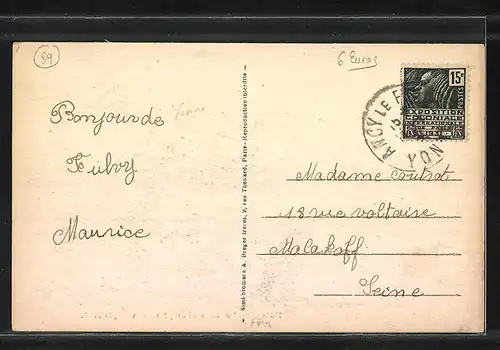 89
6 Euros
Yonne
Bonjour de
Fulvy
Maurice
Semi-bromure A. Breger frères, 9, rue Thénard, Paris - Reproduction interdite -
15c
POSTES
EXPOSITION
COLONIALE
INTERNATIONALE
PARIS
ANCY LE F
YON
Madame Coutrot
18 rue voltaire
Malakoff
Seine